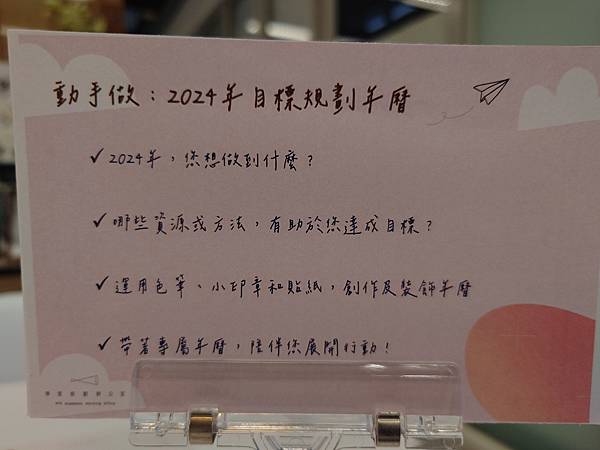 動手做：2024年目標規劃年曆
✓2024年，您想做到什麼？
✓哪些資源或方法，有助於您達成目標？
✓運用色筆、小印章和貼紙，創作及裝飾年曆
✓帶著專屬年曆，陪伴您展開行動！